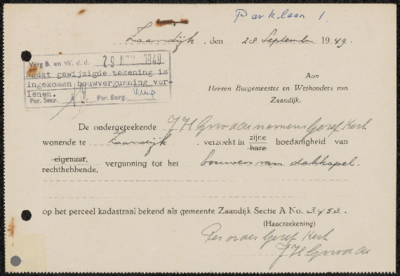 Parklaan 1.
Zaandijk, den 28 September 1949
Verg B. en W. d.d. 29 NOV 1949
Nadat gewijzigde tekening is
ingekomen bouwvergunning ver-
lenen.
Par. Secr. Par. Burg.
Aan
Heeren Burgemeester en Wethouders van
Zaandijk.
De ondergeteekende
wonende te Zaandijk verzoekt in zijne hoedanigheid van
hare
eigenaar, vergunning tot het bouwen van dakkapel.
rechthebbende,
op het perceel kadastraal bekend als gemeente Zaandijk Sectie A No. 3453.
(Handteekening)
Per order Geref Kerk